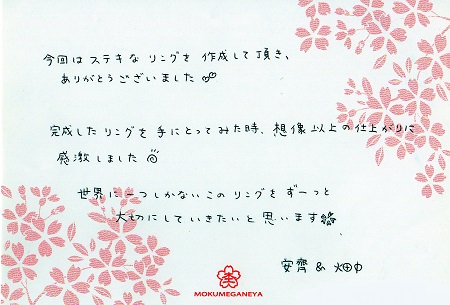 今回はステキなリングを作成して頂き、
ありがとうございました
完成したリングを手にとってみた時、想像以上の仕上がりに
感激しました
世界に一つしかないこのリングをずーっと
大切にしていきたいと思います
安齊 & 畑中
MOKUMEGANEYA